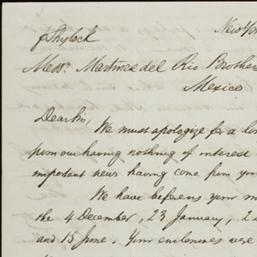 New Yor
p Shylock
Messrs. Martinez del Rio Brothe
Mexico
Dear Sir,
We must apologize for a lon
from our having nothing of interest
important news having come from you
We have before us your
the 4 December, 23 January, 2
and 15 June. Your enclosures were